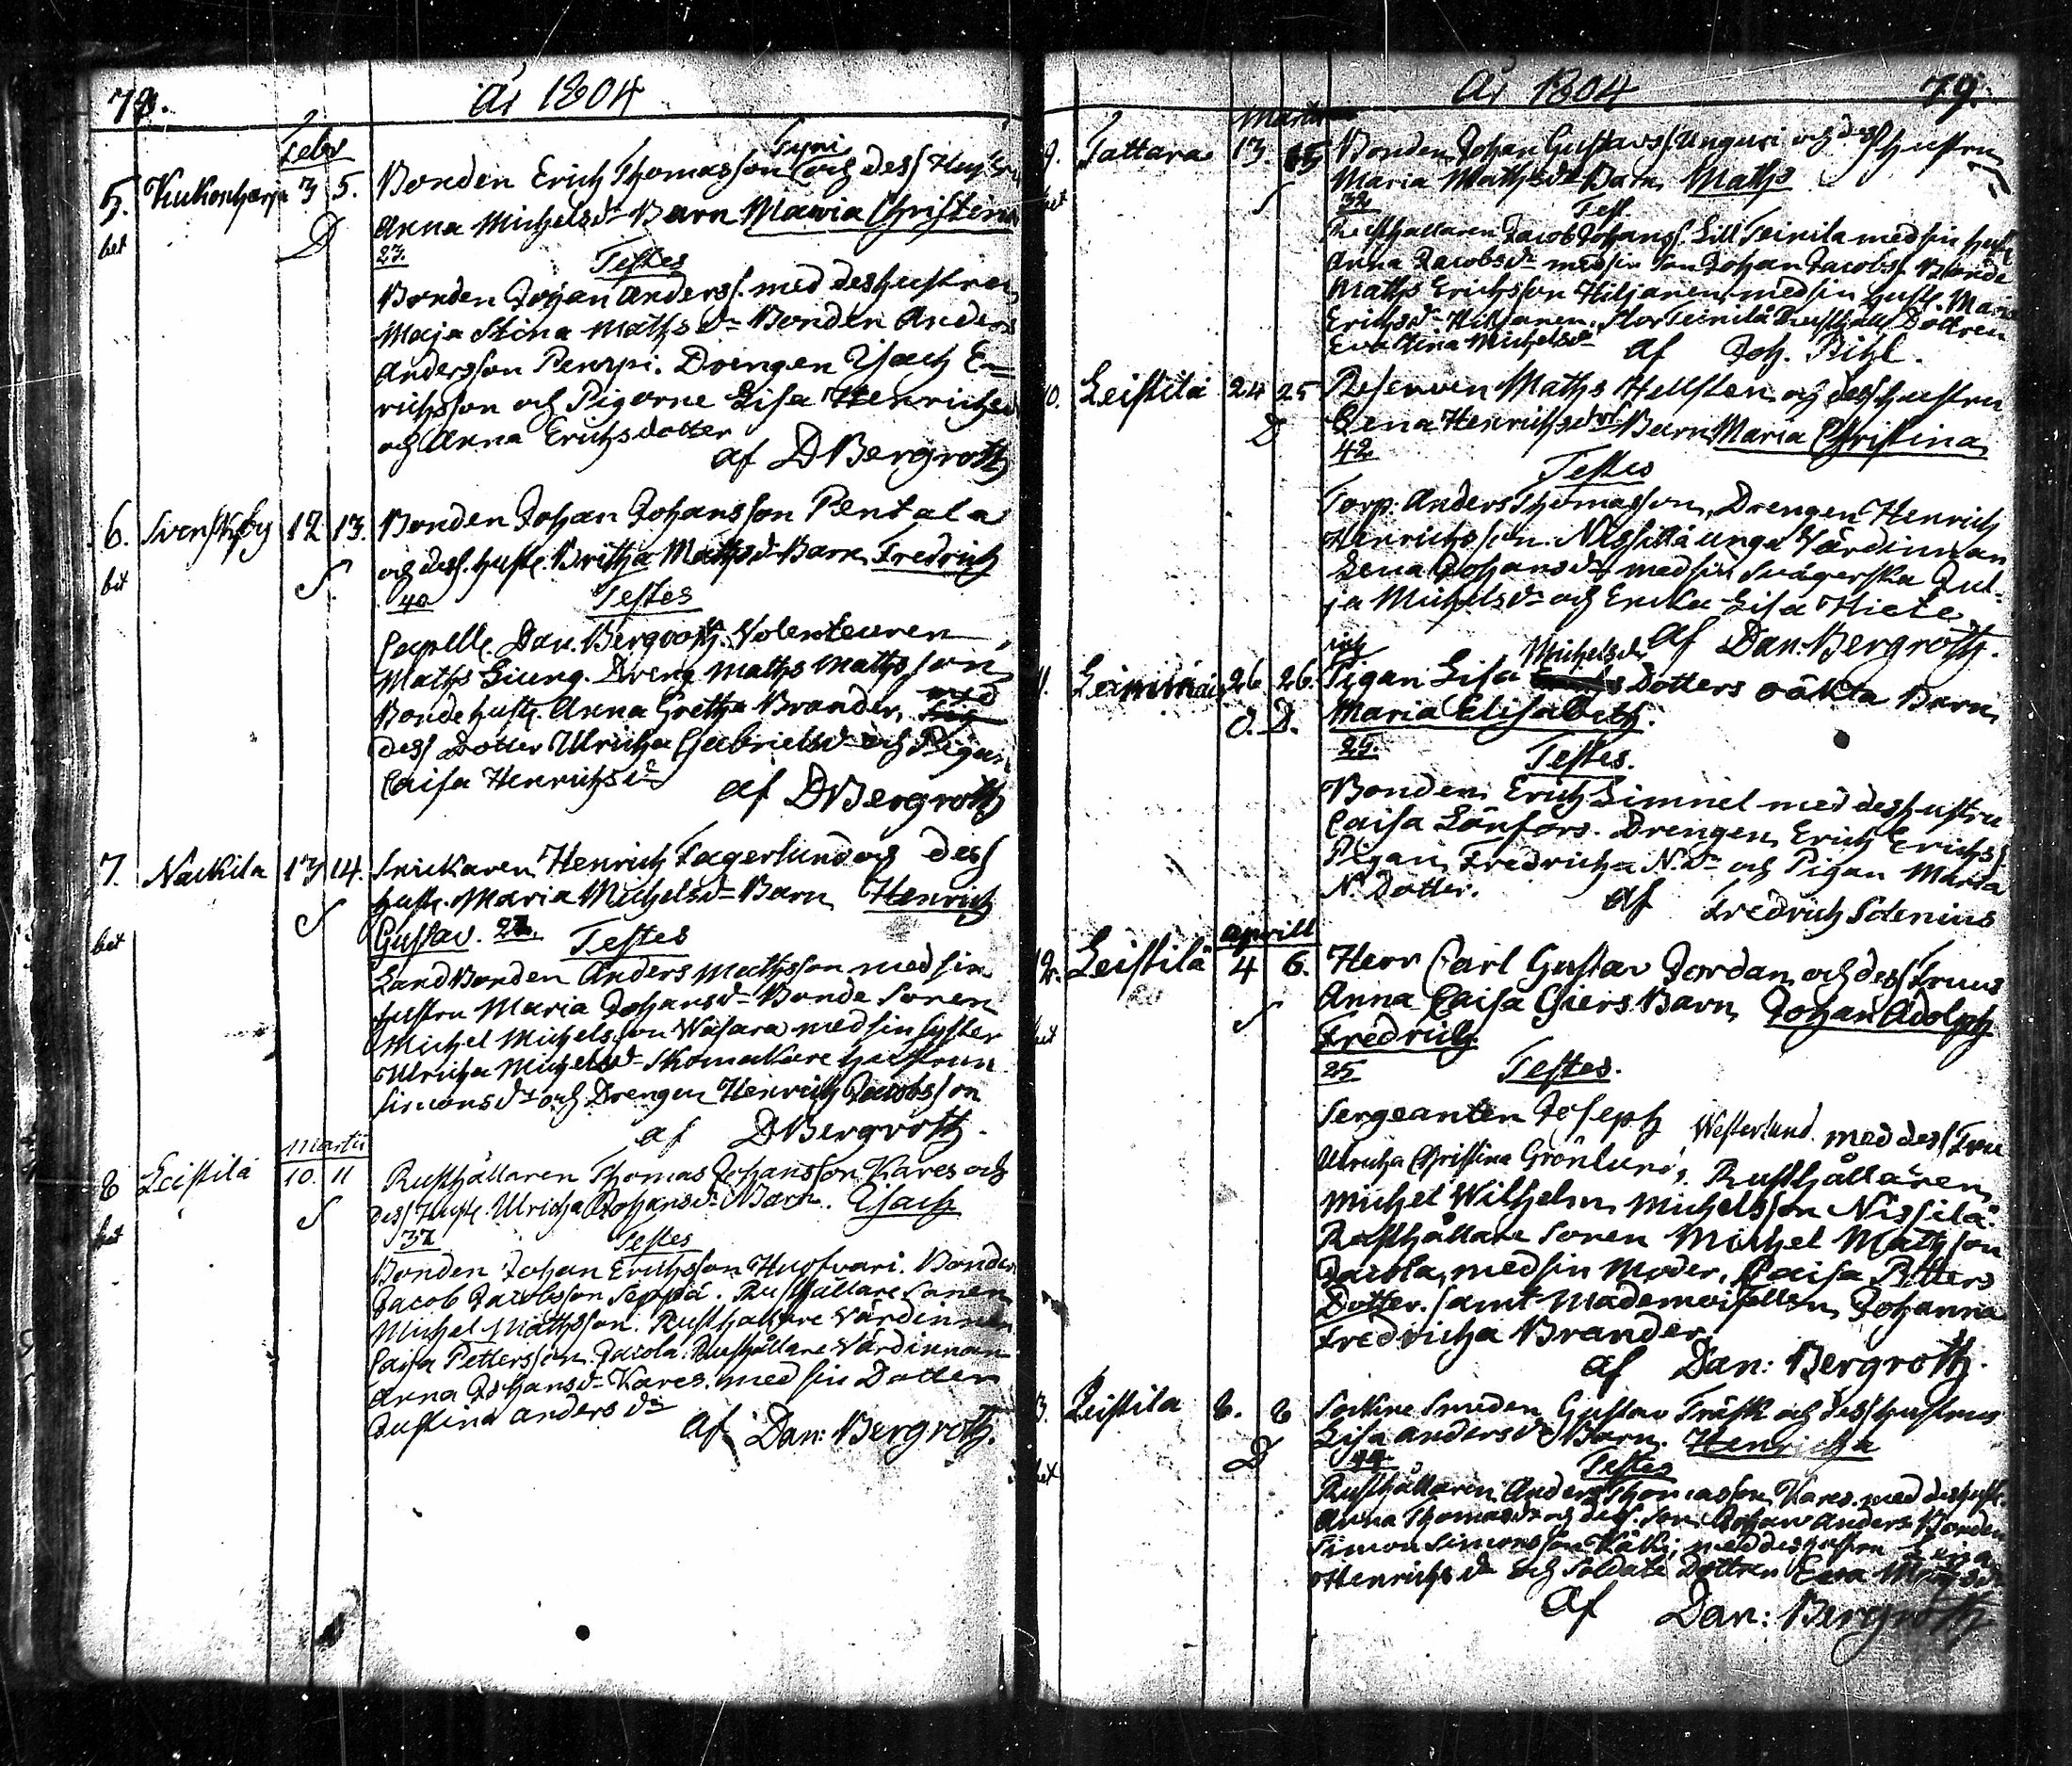 78.
År 1804
Febr
5. Kukonharja 3 5. Bonden Erich Thomasson Tyni och dess Hustru
bet D Anna Michelsdr Barn Maria Christina
27.
Testes
Bonden Johan Anderss. med dess hustru
Maja Stina Mathsdr Bonden Anders
Andersson Penrpi. Drengen Isach E=
richsson och Pigorne Lisa Henrichsd
och Anna Erichsdotter
af DBergroth
6. Svenskby 12 13. Bonden Johan Johansson Pentala
bet S och dess hustr. Britha Mathsdr Barn Fredrich
40
Testes
Capell. Dan. Bergroth. Volenteuren
Maths Liung. Dreng Maths Mathsson
Bonde hustr. Anna Gretha Brander, med
dess Dotter Ulricha Gabrielsdr och Pigan
Caisa Henrichsdr
af DBergroth
7. Nackila 13 14. Snickaren Henrich Fagerlund och dess
S hustr. Maria Michelsdr Barn Henrich
bet Gustav. 27. Testes
Landbonden Anders Mathsson med sin
hustru Maria Johansdr Bonde Sonen
Michel Michelsson Wasara med sin syster
Ulricha Michelsdr Skomakare hustrun
Simonsdr och Drengen Henrich Jacobsson
af DBergroth.
Martii
8 Leistilä 10. 11 Rusthållaren Thomas Johansson Kares och
bet S dess Hustr. Ulricha Johansdr Barn. Isach
37
Testes
Bonden Johan Erichsson Huofvari. Bonden
Jacob Jacobsson Seppä. Rusthållare Sonen
Michel Mathsson. Rusthållare Värdinnan
Caisa Pettersson Jacola. Rusthållare Värdinnan
Anna Johansdr Kares. med sin Dotter
Justina Andersdr
af Dan: Bergroth.
År 1804
79.
Martii
9. Tattara 13. 15 Bonden Johan Gustavs. Unguri och dess hustru
bet S Maria Mathsdr Barn Maths
32
Test.
Rusthållaren Jacob Johans. Lill Teinila med sin hustr
Anna Jacobsdr med sin Son Johan Jacobs. Bonde
Maths Erichsson Hiljanen med sin hustr. Maria
Erichsdr Hiljanen. Stor Teinilä Rusthåll. Dottren
Eva Stina Michelsdr
af Joh. Pihl.
10. Leistilä 24 25 Reserven Maths Hellsten och dess hustru
D Lena Henrichsdotr Barn Maria Christina
42
Testes
Torp. Anders Thomasson, Drengen Henrich
Henrichsson. Nissilä unga Värdinnan
Lena Johansdr med sin Svägerska Jul-
ja Michelsdr och Ericka Lisa Hiete
af Dan. Bergroth.
11. 26. 26. Pigan Lisa Michelsd Dotters oäkta Barn
O. D. Maria Elisabeth.
29.
Testes.
Bonden Erich Simnel med dess hustru
Caisa Länfors. Drengen Erich Erichss.
Pigan Fredricha N.dr och Pigan Maria
N. Dotter.
af Fredrich Solenius
Aprill
12. Leistilä 4 6. Herr Carl Gustav Jordan och dess Fruus
S Anna Caisa Giers Barn Johan Adolph
bet Fredrich.
25
Testes.
Sergeanten Joseph Westerlund. med dess Fru
Ulricha Christina Grönlund, Rusthållaren
Michel Wilhelm Michelsson Nissilä.
Rusthållare Sonen Michel Mathsson
Jacola, med sin Moder, Caisa Petters
Dotter. samt Mademoisellen Johanna
Fredricha Brander.
af Dan: Bergroth.
13. Leistila 8. 8 Sockne Smeden Gustav Träsk och dess hustrus
bet D Lisa Andersdr Barn. Henricha
44.
Testes
Rusthållaren Anders Thomasson Kares. med dess hustr.
Anna Thomasdr och dess. Son Johan Anders. Bonden
Simon Simonsson Käki, med dess hustru
Henrichsdr och Soldate Dottren Eva Mathsdr
af Dan: Bergroth.